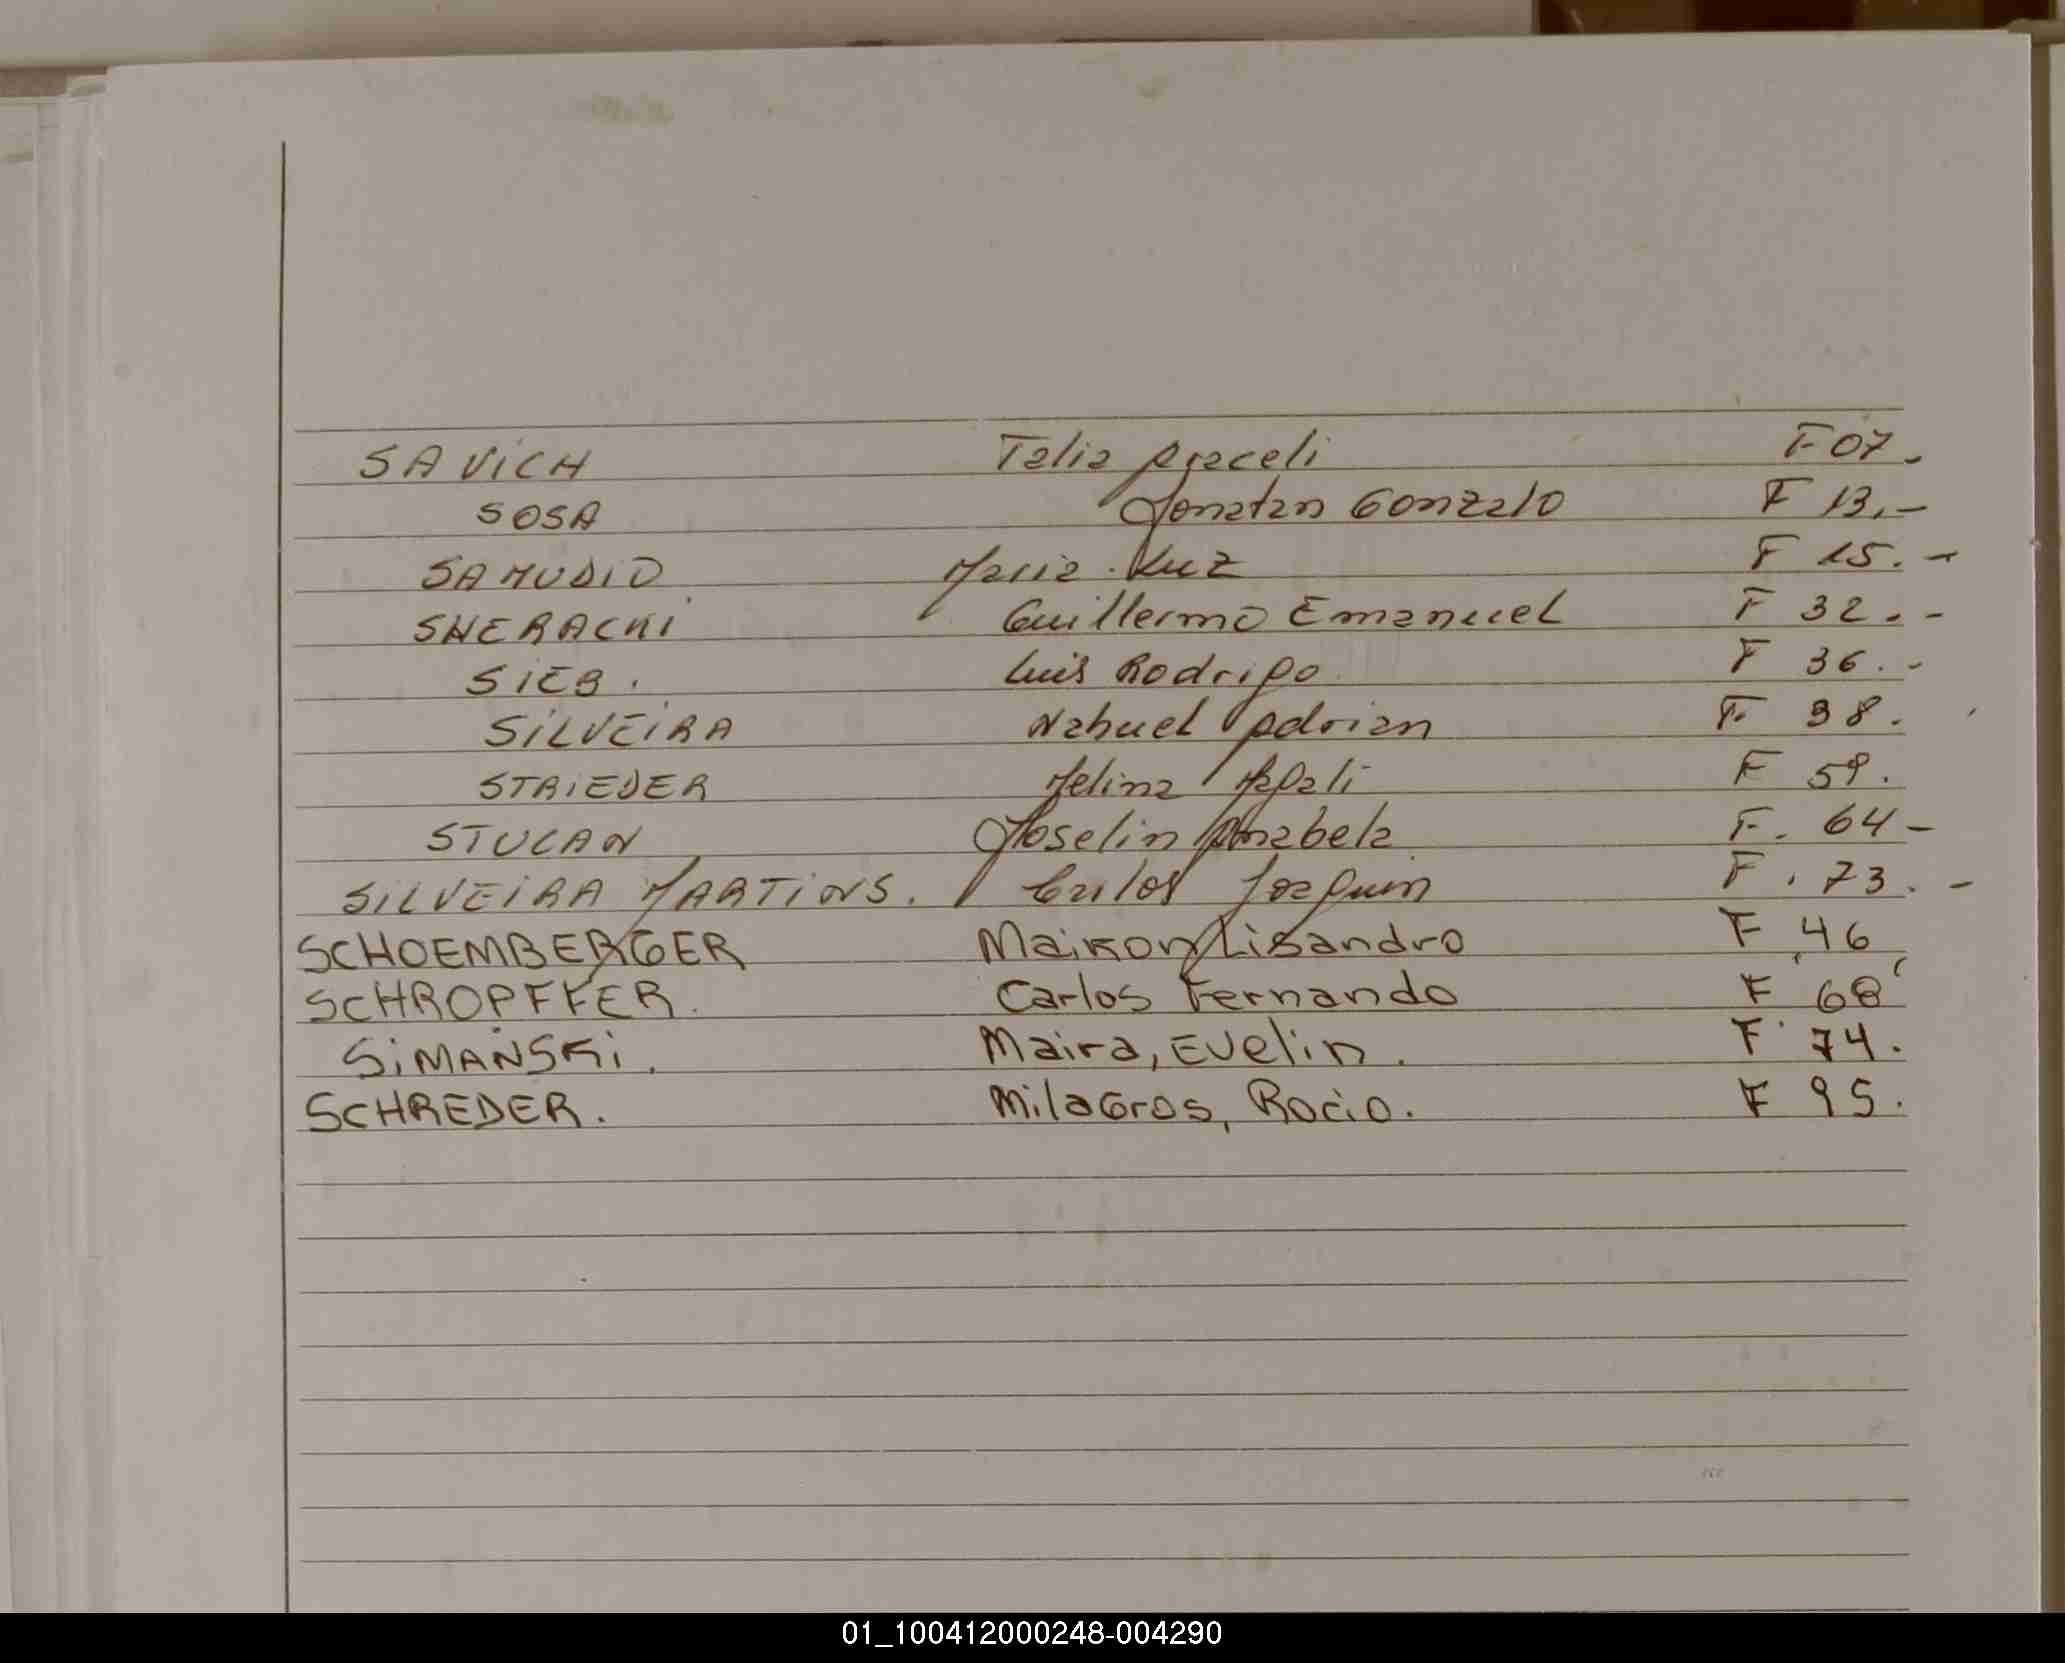 SAVICH Talia Araceli F 07.
SOSA Jonatan Gonzalo F 13.-
SAMUDIO Maria Luz F 15.-
SNERACKI Guillermo Emanuel F 32.-
SIEB. Luis Rodrigo F 36.-
SILVEIRA Nahuel Adrian F. 38.
STRIEDER Melina Magali F 59.
STULAN Joselin Anabela F. 64-
SILVEIRA MARTINS. Carlos Joaquin F. 73.-
SCHOEMBERGER Maikon Lisandro F 46
SCHROPFFER. Carlos Fernando F 68
SiMANSKi. Maira, Evelin. F 74.
SCHREDER. Milagros, Rocio. F 95.
01_100412000248-004290